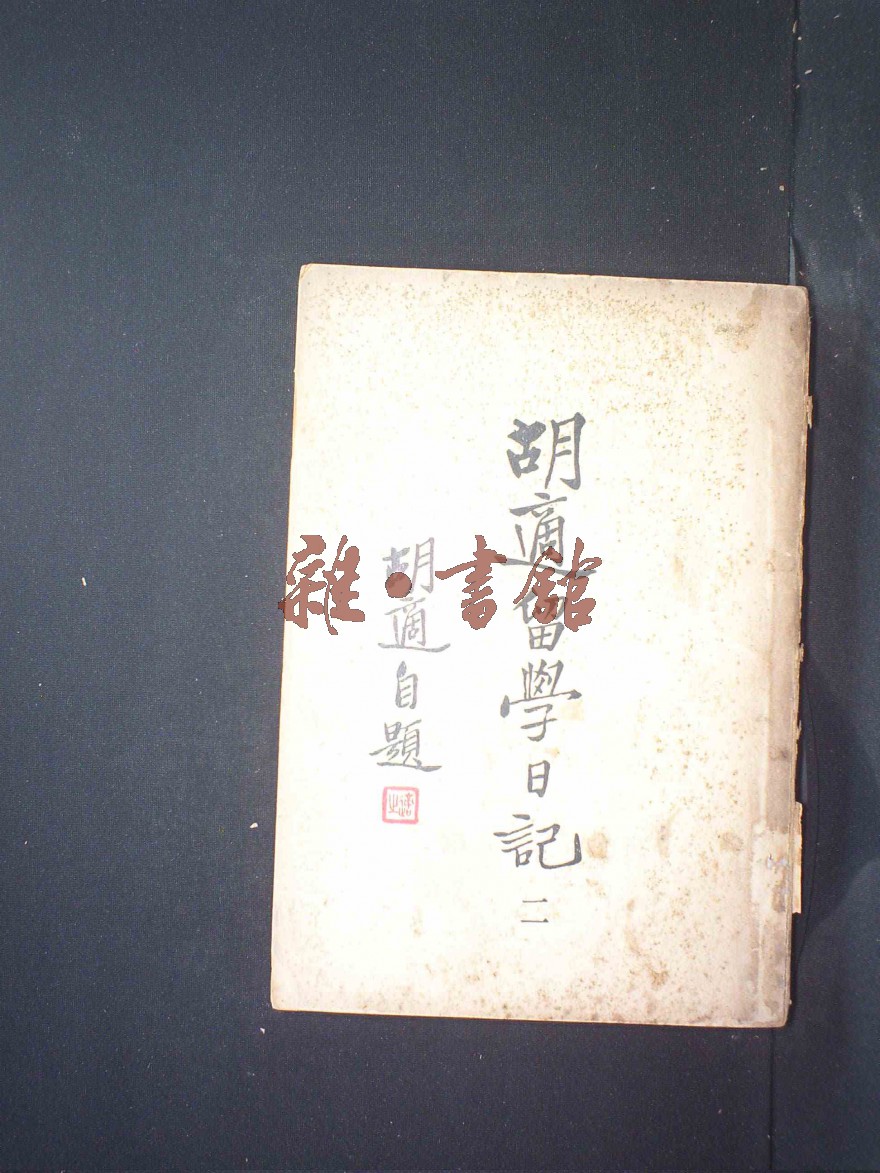 胡適留學日記
二
胡適自題
適之
雜・書館